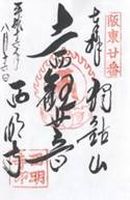 阪東廿番
奉拝 獨鈷山
十一面観世音
西明寺
平成
八月十六日